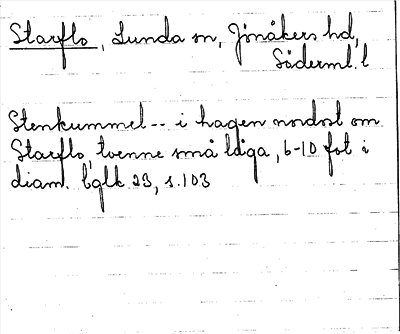 Starflo, Lunda sn, Jönåkers hd,
Söderml. l
Stenkummel -- i hagen nordost om
Starflo, tvenne små låga, 6-10 fot i
diam. bglk 23, s. 103